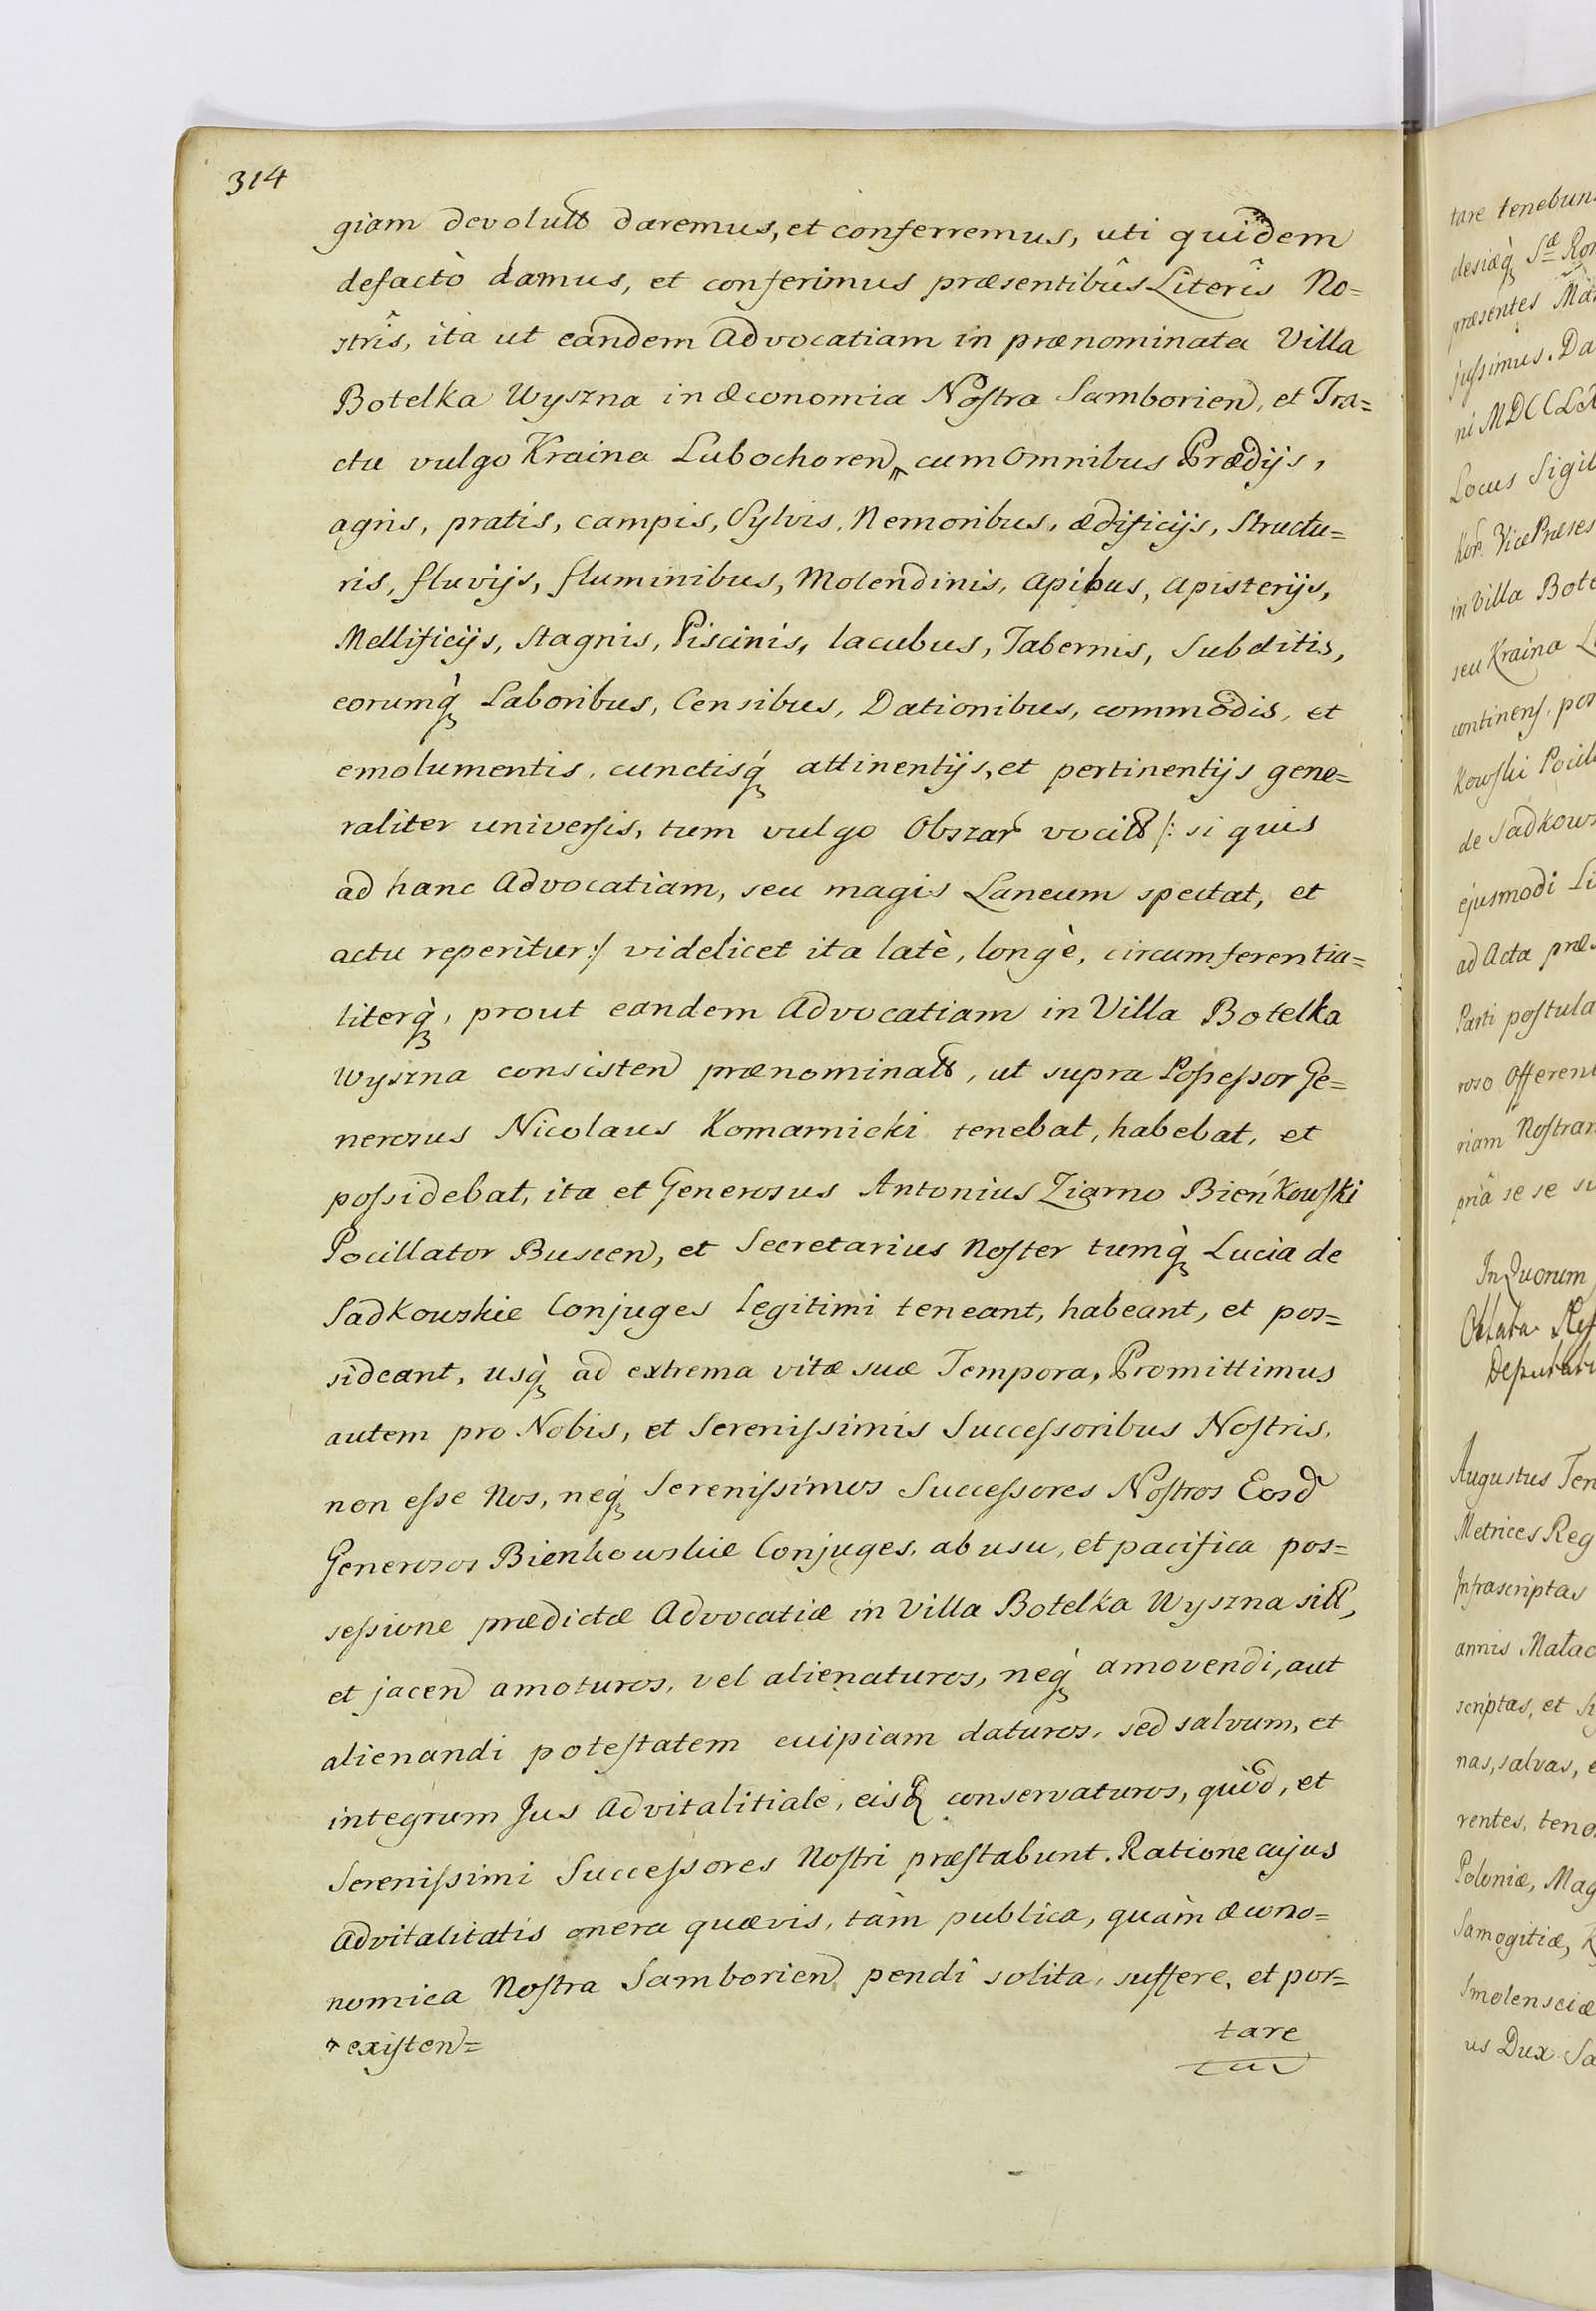 314
giam devolutt daremus, et conferremus, uti quidem
defactò damus, et conferimus præsentibûs Literîs No=
strîs, ita ut eandem Advocatiam in prænominata Villa
Botelka Wyszna in Œconomia Nostra Samborien, et Tra=
ctu vulgo Kraina Lubochoren cum omnibus Prædijs,
agris, pratis, campis, Sylvis, Nemoribus, ædificijs, Structu=
ris, fluvijs, fluminibus, Molendinis, apibus, apisterijs,
Mellificijs, Stagnis, Piscinis, lacubus, Tabernis, Subditis,
eorumq̀ Laboribus, Censibus, Dationibus, commodis, et
emolumentis, cunctisq́ attinentijs, et pertinentijs gene=
raliter universis, tum vulgo Obszar vocitt /: si quis
ad hanc Advocatiam, seu magis Laneum spectat, et
actu reperitur :/ videlicet ita latè, longè, circumferentia=
literq̀, prout eandem Advocatiam in Villa Botelka
Wyszna consisten prænominatt, ut supra Possessor Ge=
nerosus Nicolaus Komarnicki tenebat, habebat, et
possidebat, ita et Generosus Antonius Ziarno Bieńkowski
Pocillator Buscen, et Secretarius Noster tumq̀ Lucia de
Sadkowskie Conjuges legitimi teneant, habeant, et pos=
sideant, usq̀ ad extrema vitæ suæ Tempora, Promittimus
autem pro Nobis, et Serenissimis Successoribus Nostris,
non esse Nos, neq́ Serenissimos Successores Nostros Eosd
Generosos Bienkowskie Conjuges, ab usu, et pacifica pos=
sessione prædictæ Advocatiæ in Villa Botelka Wyszna sitt,
et jacen amoturos, vel alienaturos, neq́ amovendi, aut
alienandi potestatem cuipiam daturos, sed salvum, et
integrum Jus Advitalitiale, eisq conservaturos, quòd, et
Serenissimi Successores Nostri præstabunt. Ratione cujus
Advitalitatis onera quævis, tàm publica, quàm œcono=
nomica Nostra Samborien pendi solita, suffere, et por=
existen=
tare
tare tenebun
desiæq̀ Sæ Ro
præsentes Ma
jussimus. Da
ni MDCCLX
Locus Sigil
Kor. Vice Præses
in Villa Bote
seu Kraina L
continens, per
Kowski Pocil
de Sadkows
ejusmodi Li
ad Acta præ
Parti postula
roso Offerent
riam Nostram
priâ se se su
In Quorum
Deputat
Augustus Ter
Metrices Reg
Infrascriptas
annis Malac
scriptas, et S
nas, salvas, e
rentes, teno
Poloniæ, Mag
Samogitiæ, K
Smolensciæ
us Dux Sa